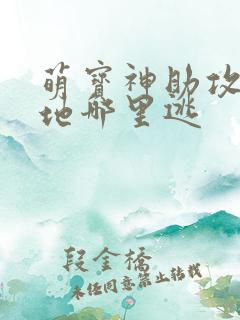 萌寶神助攻
地哪里逃
段金橋
未经同意禁止转载